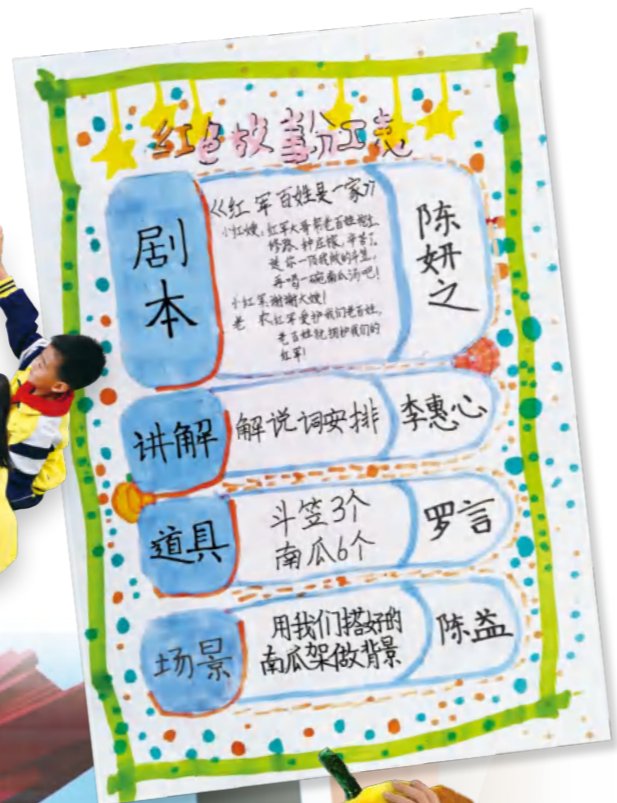 红色故事分工表
剧本
《红军百姓是一家》
小红嫂:红军大哥帮老百姓挖土
修路、种庄稼,辛苦了,
送你一顶我做的斗笠,
再喝一碗南瓜汤吧!
小红军:谢谢大嫂!
老农:红军爱护我们老百姓,
老百姓就拥护我们的
红军!
陈妍之
讲解
解说词安排
李惠心
道具
斗笠3个
南瓜6个
罗言
场景
用我们搭好的
南瓜架做背景
陈益